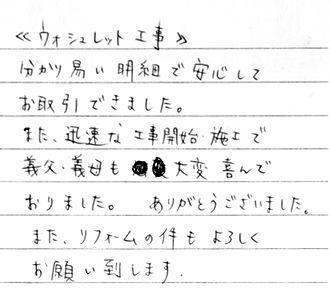 ≪ウォシュレット工事≫
分かり易い明細で安心して
お取引できました。
また、迅速な工事開始・施工で
義父・義母も大変喜んで
おりました。 ありがとうございました。
また、リフォームの件もよろしく
お願い到します.